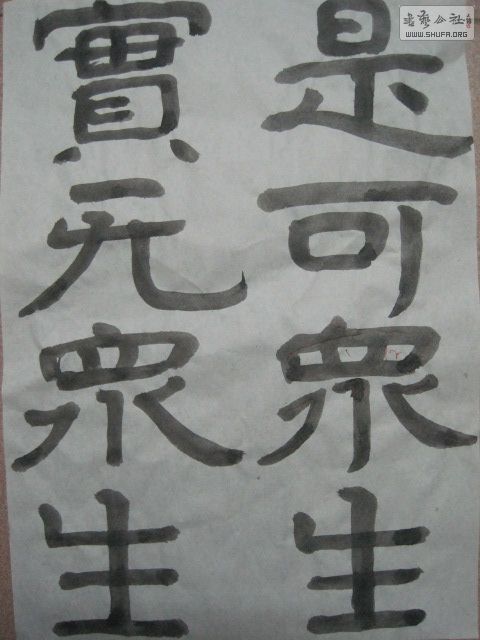 是可眾生
實无眾生
書藝公社
WWW.SHUFA.ORG